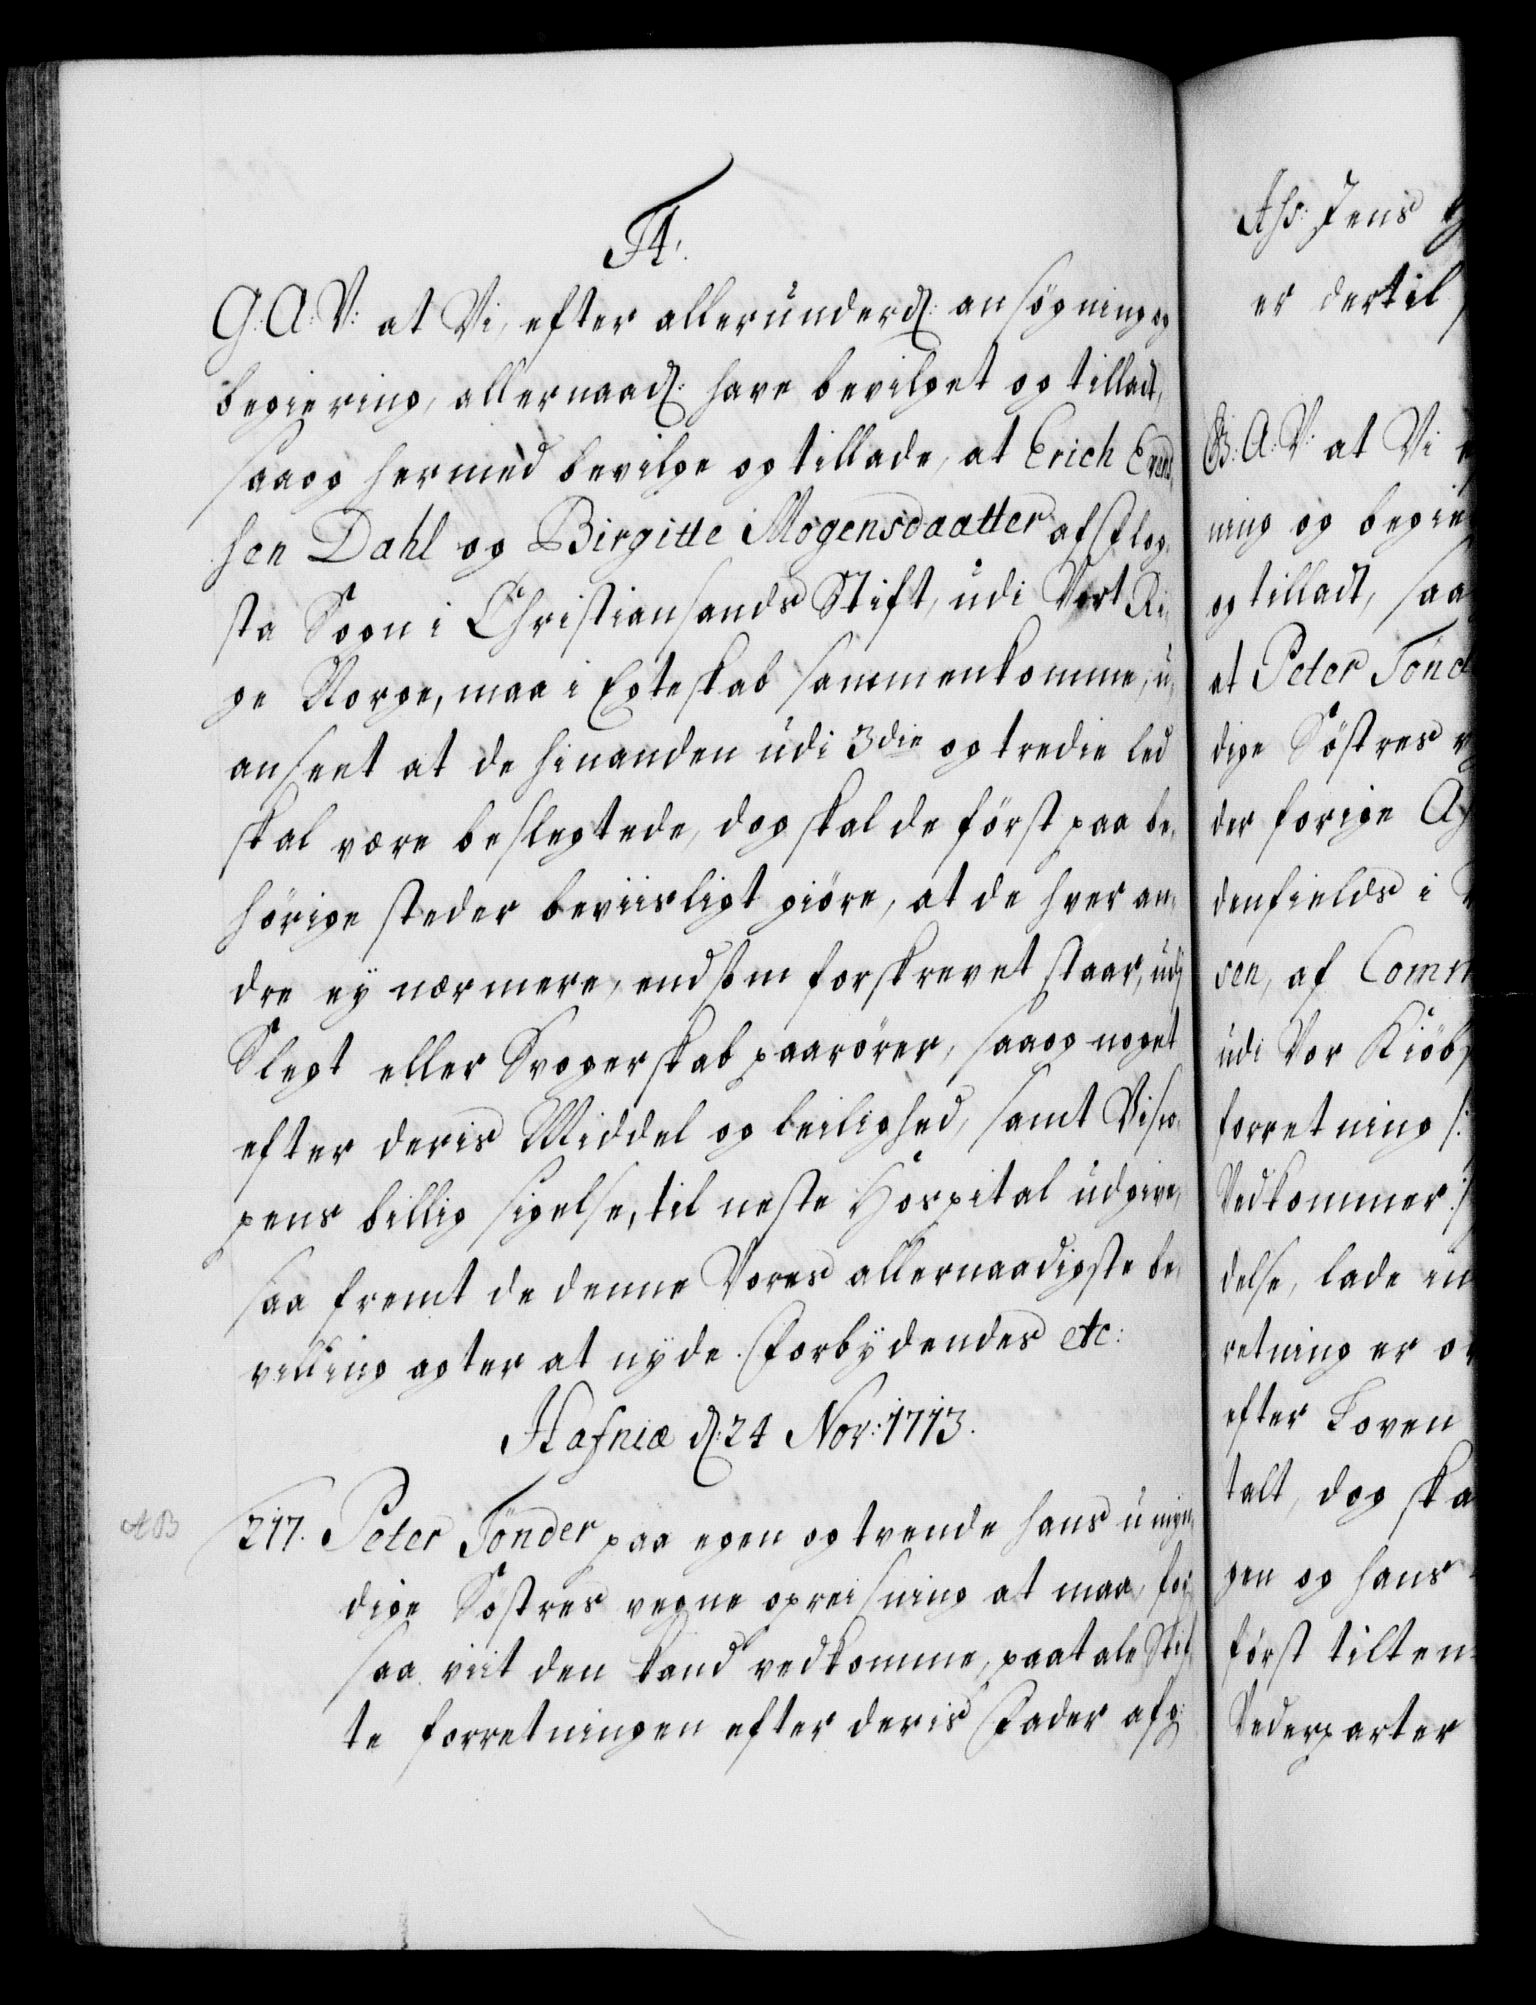 F4.
G: A: V: at Vi, efter allerunderd: ansøgning og
begiering, allernaad: have bevilget og tilladt,
saa og hermed bevilge og tillade, at Erich Evend,
sen Dahl og Birgitte Mogensdaatter af
sta Sogn i Christiansands Stift, udi Vort Ri,
ge Norge, maa i Egteskab sammenkomme, u,
anseet at de hinanden udi 3die og tredie led
skal være beslegtede, dog skal de först paa be,
hörige steder beviisligt giöre, at de hver an,
dre ey nærmere, end som forskrevet staar, udj
Slegt eller Svogerskab paarörer, saa og noget
efter deris Middel og leilighed, samt Bisco,
pens billig sigelse, til neste Hospital udgive,
saa fremt de denne Vores allernaadigste be,
villing agter at nyde. Forbydendes etc:
Hafniæ d: 24 Nov: 1713.
AB
217. Peter Tönder paa egen og tvende hans umyn,
dige Söstres vegne opreisning at maa, for
saa viit den kand vedkomme, paatale Skif,
te forretningen efter deris Fader afg:
Ass: Jens
er dertil
G: A: V: at Vi
ning og begie
og tilladt, saa
at Peter Tönd
dige Söstres v
der forige
denfields i
sen, af Comm
udi Vor Kiöb
forretning /:
Vedkommer :/
delse, lade in
retning er
efter Loven
talt, dog ska
gen og hans
först tilten
Vederparter